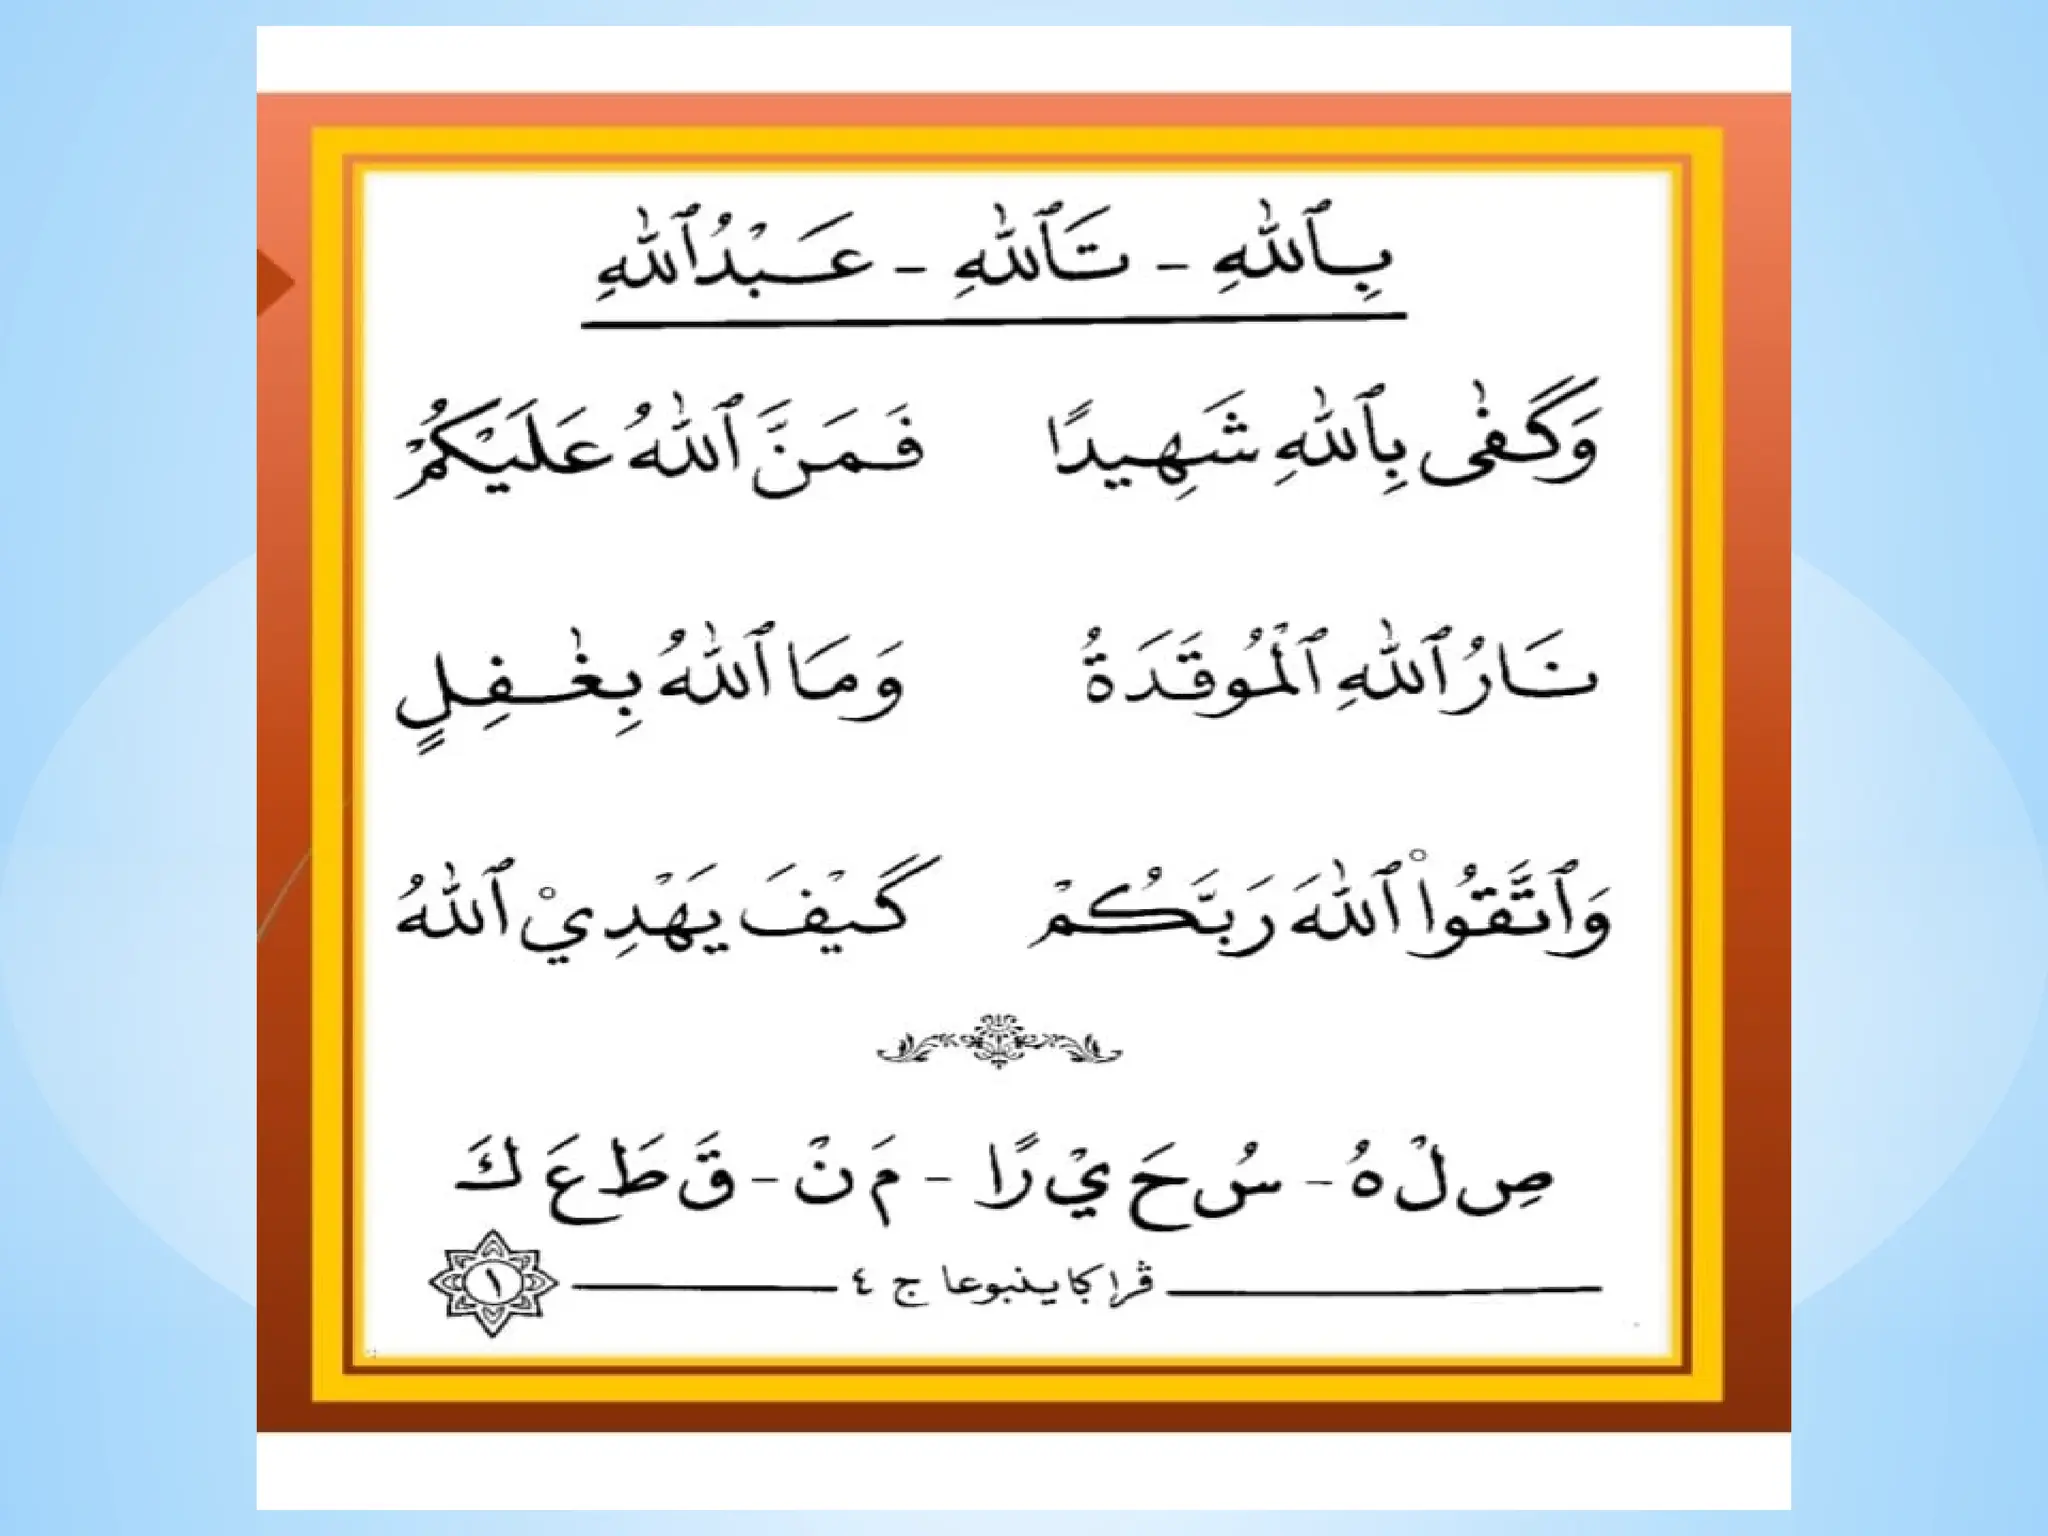 بِٱللّٰهِ - تَٱللّٰهِ - عَبْدُٱللّٰهِ
وَكَفٰى بِٱللّٰهِ شَهِيدًا فَمَنَّ ٱللّٰهُ عَلَيْكُمْ
نَارُ ٱللّٰهِ ٱلْمُوقَدَةُ وَمَا ٱللّٰهُ بِغٰفِلٍ
وَٱتَّقُوا۟ ٱللّٰهَ رَبَّكُمْ كَيْفَ يَهْدِيْ ٱللّٰهُ
صِ لْ هُ - سُ حَ يْ رًا - مَ نْ - قَ طَ عَ كَ
ڤراكاينبوعا ج ٤
١